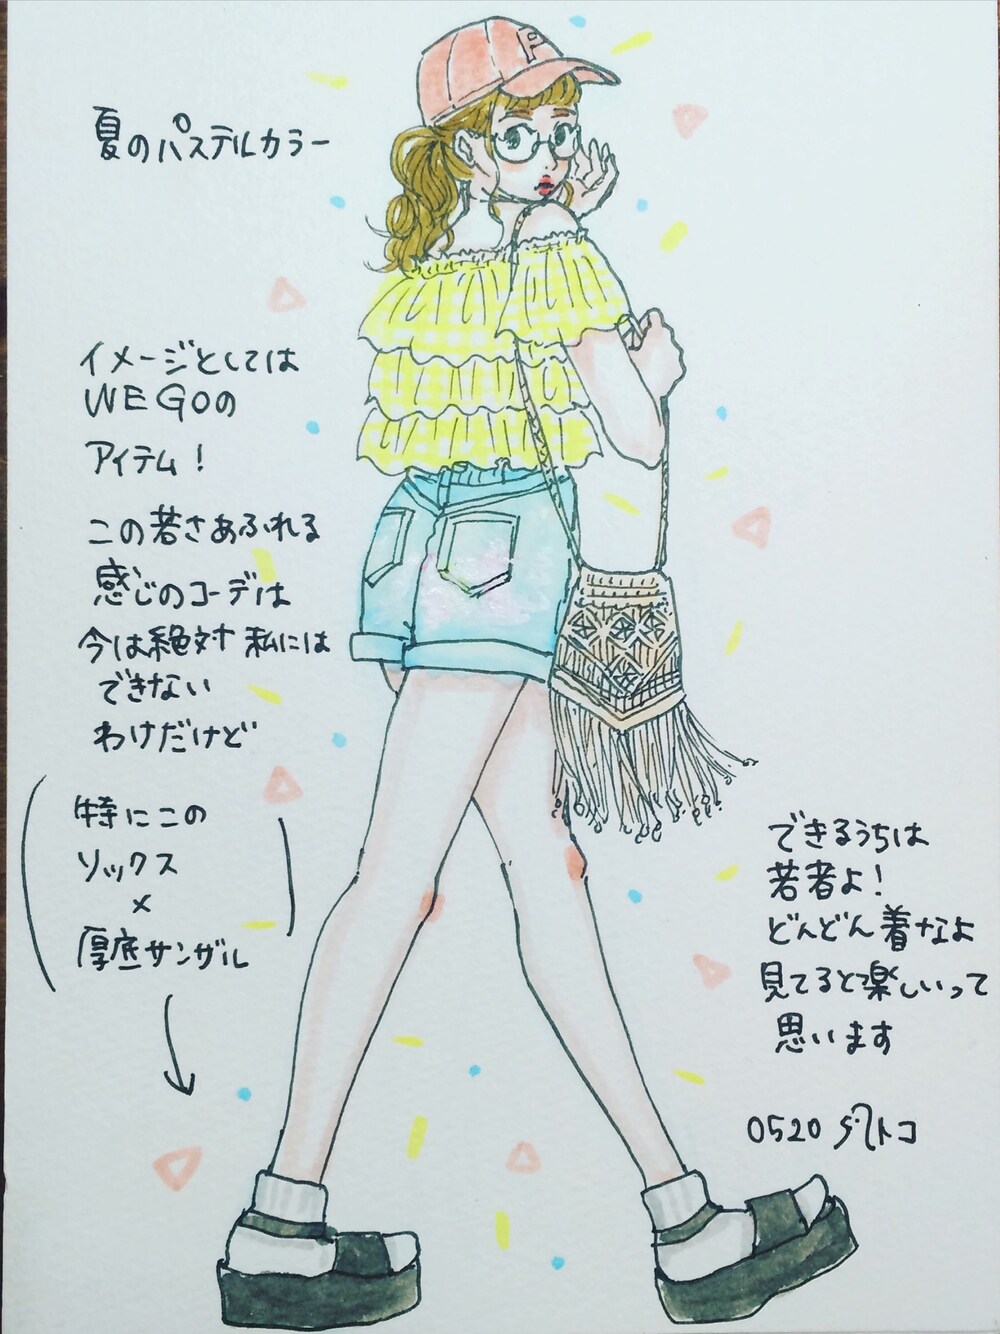 P
夏のパステルカラー
イメージとしては
WEGOの
アイテム!
この若さあふれる
感じのコーデは
今は絶対私には
できない
わけだけど
特にこの
ソックス
×
厚底サンダル
できるうちは
若者よ!
どんどん着なよ
見てると楽しいって
思います
0520